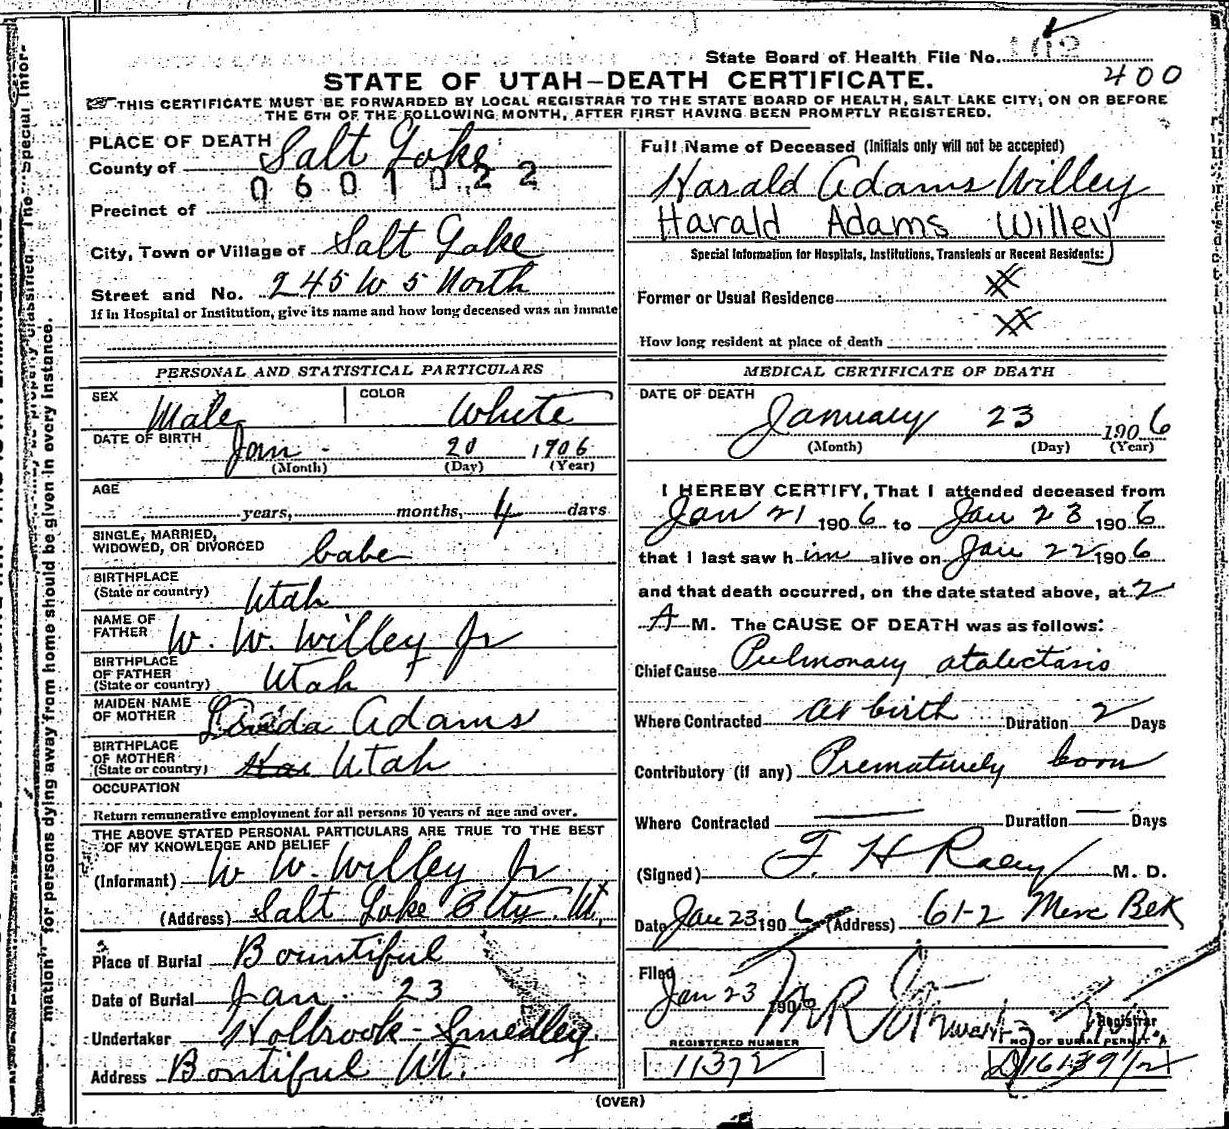 State Board of Health File No. 102
400
STATE OF UTAH—DEATH CERTIFICATE.
THIS CERTIFICATE MUST BE FORWARDED BY LOCAL REGISTRAR TO THE STATE BOARD OF HEALTH, SALT LAKE CITY, ON OR BEFORE
THE 5TH OF THE FOLLOWING MONTH, AFTER FIRST HAVING BEEN PROMPTLY REGISTERED.
PLACE OF DEATH
County of Salt Lake
0601022
Precinct of
City, Town or Village of Salt Lake
Street and No. 245 W 5 North
If in Hospital or Institution, give its name and how long deceased was an inmate
PERSONAL AND STATISTICAL PARTICULARS
SEX Male COLOR White
DATE OF BIRTH Jan. 20 1906
(Month) (Day) (Year)
AGE
years, months, 4 days
SINGLE, MARRIED,
WIDOWED, OR DIVORCED babe
BIRTHPLACE
(State or country) Utah
NAME OF
FATHER W. W. Willey Jr
BIRTHPLACE
OF FATHER
(State or country) Utah
MAIDEN NAME
OF MOTHER Adams
BIRTHPLACE
OF MOTHER
(State or country) Utah
OCCUPATION
Return remunerative employment for all persons 10 years of age and over.
THE ABOVE STATED PERSONAL PARTICULARS ARE TRUE TO THE BEST
OF MY KNOWLEDGE AND BELIEF
(Informant) W W Willey Jr
(Address) Salt Lake City Ut.
Place of Burial Bountiful
Date of Burial Jan. 23
Undertaker Holbrook-Smedley
Address Bontiful Ut.
Full Name of Deceased (Initials only will not be accepted)
Harald Adams Willey
Harald Adams Willey
Special Information for Hospitals, Institutions, Transients or Recent Residents:
Former or Usual Residence
How long resident at place of death
MEDICAL CERTIFICATE OF DEATH
DATE OF DEATH
January 23 1906
(Month) (Day) (Year)
I HEREBY CERTIFY, That I attended deceased from
Jan 21 1906 to Jan 23 1906
that I last saw him alive on Jan 22 1906
and that death occurred, on the date stated above, at 2
A M. The CAUSE OF DEATH was as follows:
Chief Cause Pulmonary atalectasis
Where Contracted at birth Duration 2 Days
Contributory (if any) Prematurely born
Where Contracted — Duration — Days
(Signed) F. H Raley M. D.
Date Jan 23 1906 (Address) 61-2 Merc Blk
Filed
Jan 23 1906
Registrar
REGISTERED NUMBER
11372
NO. OF BURIAL PERMIT
(OVER)
mation" for persons dying away from home should be given in every instance.